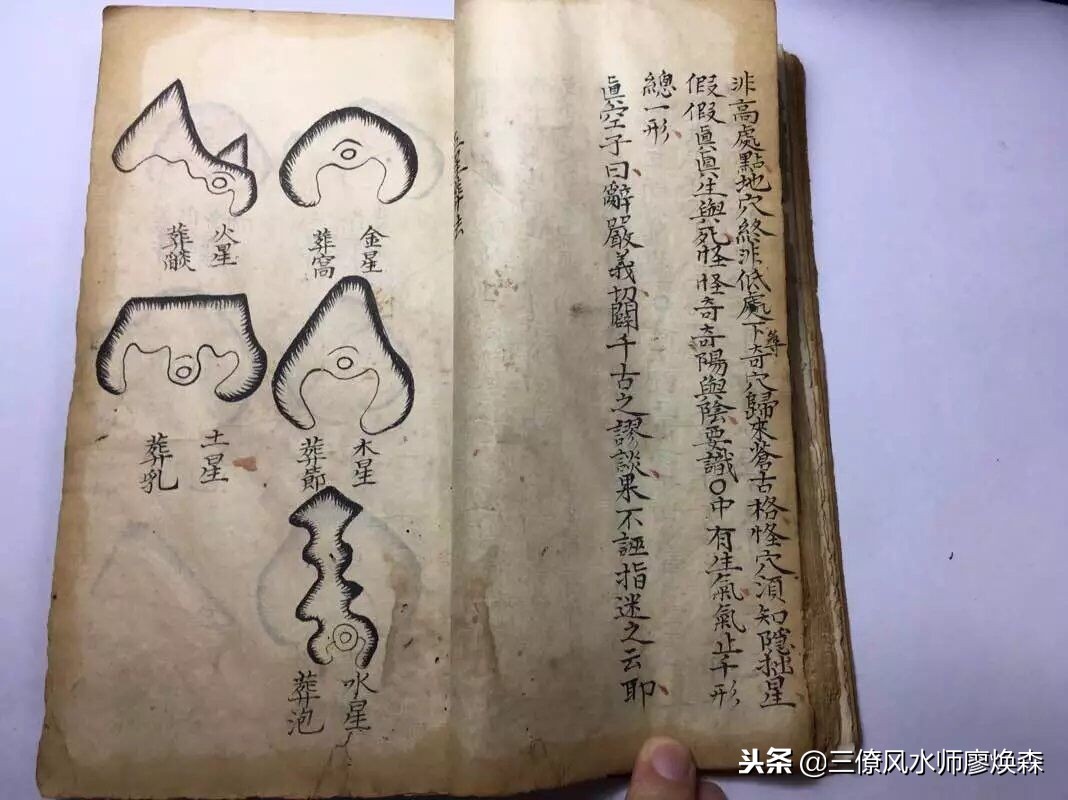 非高處點地穴終非低處下尋奇穴歸來蒼古格怪穴須知隱拙星
假假眞眞生與死怪怪奇奇陽與陰要識〇中有生氣氣止千形
總一形
眞空子曰辭嚴義切闢千古之謬談果不誣指迷之云耶
金星
葬窩
火星
葬燄
木星
葬節
土星
葬乳
水星
葬泡
头条 @三僚风水师廖焕森